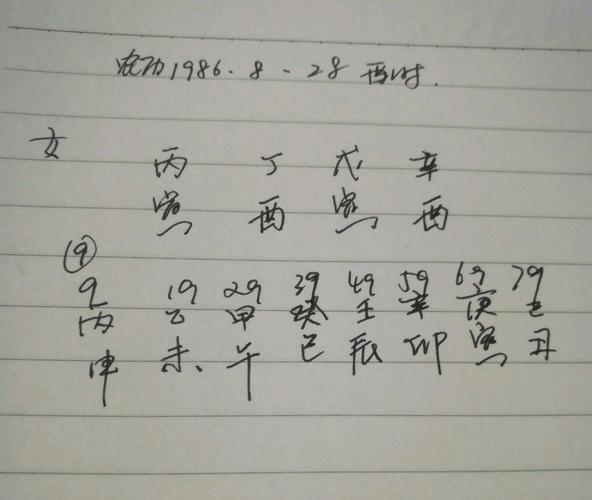 农历1986.8-28 酉时.
女
丙 丁 戊 辛
寅 酉 寅 酉
⑨
9 19 29 39 49 59 69 79
丙 乙 甲 癸 壬 辛 庚 己
申 未 午 巳 辰 卯 寅 丑